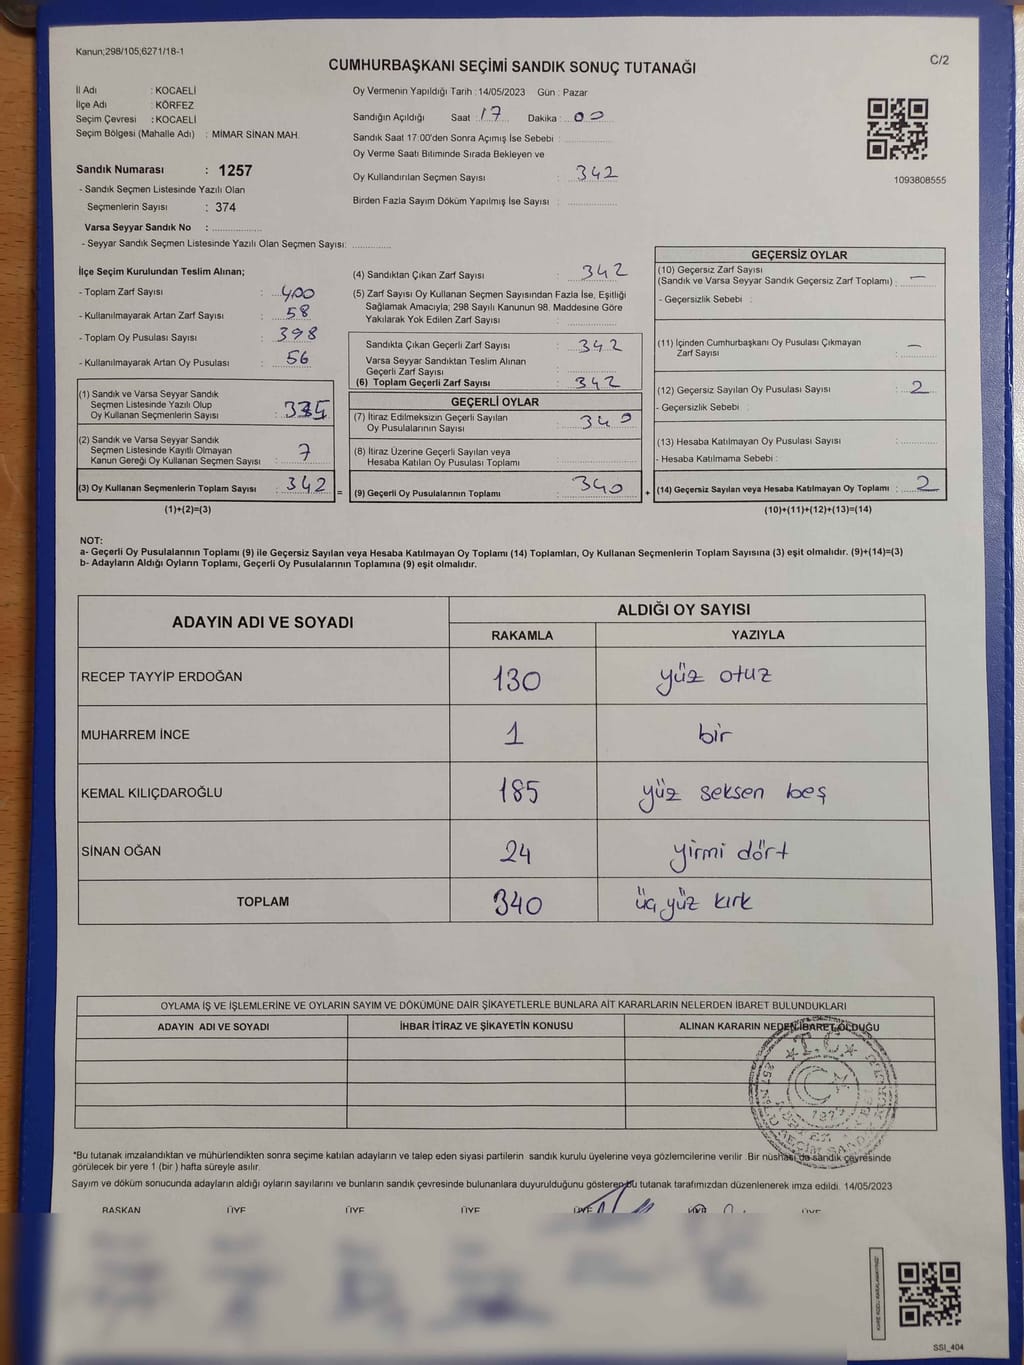 Kanun;298/105,6271/18-1
C/2
CUMHURBAŞKANI SEÇİMİ SANDIK SONUÇ TUTANAĞI
İl Adı : KOCAELİ
İlçe Adı : KÖRFEZ
Seçim Çevresi : KOCAELİ
Seçim Bölgesi (Mahalle Adı) : MİMAR SİNAN MAH.
Sandık Numarası : 1257
- Sandık Seçmen Listesinde Yazılı Olan
Seçmenlerin Sayısı : 374
Varsa Seyyar Sandık No :
- Seyyar Sandık Seçmen Listesinde Yazılı Olan Seçmen Sayısı:
Oy Vermenin Yapıldığı Tarih : 14/05/2023 Gün : Pazar
Sandığın Açıldığı Saat : 17 Dakika : 00
Sandık Saat 17:00'den Sonra Açımış İse Sebebi :
Oy Verme Saati Bitiminde Sırada Bekleyen ve
Oy Kullandırılan Seçmen Sayısı : 342
Birden Fazla Sayım Döküm Yapılmış İse Sayısı :
1093808555
İlçe Seçim Kurulundan Teslim Alınan;
- Toplam Zarf Sayısı : 400
- Kullanılmayarak Artan Zarf Sayısı : 58
- Toplam Oy Pusulası Sayısı : 398
- Kullanılmayarak Artan Oy Pusulası : 56
(1) Sandık ve Varsa Seyyar Sandık
Seçmen Listesinde Yazılı Olup
Oy Kullanan Seçmenlerin Sayısı : 335
(2) Sandık ve Varsa Seyyar Sandık
Seçmen Listesinde Kayıtlı Olmayan
Kanun Gereği Oy Kullanan Seçmen Sayısı : 7
(3) Oy Kullanan Seçmenlerin Toplam Sayısı : 342
(1)+(2)=(3)
(4) Sandıktan Çıkan Zarf Sayısı : 342
(5) Zarf Sayısı Oy Kullanan Seçmen Sayısından Fazla İse, Eşitliği
Sağlamak Amacıyla; 298 Sayılı Kanunun 98. Maddesine Göre
Yakılarak Yok Edilen Zarf Sayısı :
Sandıkta Çıkan Geçerli Zarf Sayısı : 342
Varsa Seyyar Sandıktan Teslim Alınan
Geçerli Zarf Sayısı :
(6) Toplam Geçerli Zarf Sayısı : 342
GEÇERLİ OYLAR
(7) İtiraz Edilmeksizin Geçerli Sayılan
Oy Pusulalarının Sayısı : 340
(8) İtiraz Üzerine Geçerli Sayılan veya
Hesaba Katılan Oy Pusulası Toplamı :
= (9) Geçerli Oy Pusulalarının Toplamı : 340
GEÇERSİZ OYLAR
(10) Geçersiz Zarf Sayısı
(Sandık ve Varsa Seyyar Sandık Geçersiz Zarf Toplamı) : —
- Geçersizlik Sebebi :
(11) İçinden Cumhurbaşkanı Oy Pusulası Çıkmayan
Zarf Sayısı : —
(12) Geçersiz Sayılan Oy Pusulası Sayısı : 2
- Geçersizlik Sebebi :
(13) Hesaba Katılmayan Oy Pusulası Sayısı :
- Hesaba Katılmama Sebebi :
+ (14) Geçersiz Sayılan veya Hesaba Katılmayan Oy Toplamı : 2
(10)+(11)+(12)+(13)=(14)
NOT:
a- Geçerli Oy Pusulalarının Toplamı (9) ile Geçersiz Sayılan veya Hesaba Katılmayan Oy Toplamı (14) Toplamları, Oy Kullanan Seçmenlerin Toplam Sayısına (3) eşit olmalıdır. (9)+(14)=(3)
b- Adayların Aldığı Oyların Toplamı, Geçerli Oy Pusulalarının Toplamına (9) eşit olmalıdır.
ADAYIN ADI VE SOYADI
ALDIĞI OY SAYISI
RAKAMLA YAZIYLA
RECEP TAYYİP ERDOĞAN 130 yüz otuz
MUHARREM İNCE 1 bir
KEMAL KILIÇDAROĞLU 185 yüz seksen beş
SİNAN OĞAN 24 yirmi dört
TOPLAM 340 üç yüz kırk
OYLAMA İŞ VE İŞLEMLERİNE VE OYLARIN SAYIM VE DÖKÜMÜNE DAİR ŞİKAYETLERLE BUNLARA AİT KARARLARIN NELERDEN İBARET BULUNDUKLARI
ADAYIN ADI VE SOYADI İHBAR İTİRAZ VE ŞİKAYETİN KONUSU ALINAN KARARIN NEDEN İBARET OLDUĞU
T.C.
*Bu tutanak imzalandıktan ve mühürlendikten sonra seçime katılan adayların ve talep eden siyasi partilerin sandık kurulu üyelerine veya gözlemcilerine verilir .Bir nüshası da sandık çevresinde
görülecek bir yere 1 (bir ) hafta süreyle asılır.
Sayım ve döküm sonucunda adayların aldığı oyların sayılarını ve bunların sandık çevresinde bulunanlara duyurulduğunu gösteren bu tutanak tarafımızdan düzenlenerek imza edildi. 14/05/2023
BAŞKAN ÜYE ÜYE ÜYE ÜYE ÜYE ÜYE
SSI_404